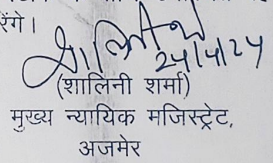 रेंगे।
24/4/24
(शालिनी शर्मा)
मुख्य न्यायिक मजिस्ट्रेट,
अजमेर